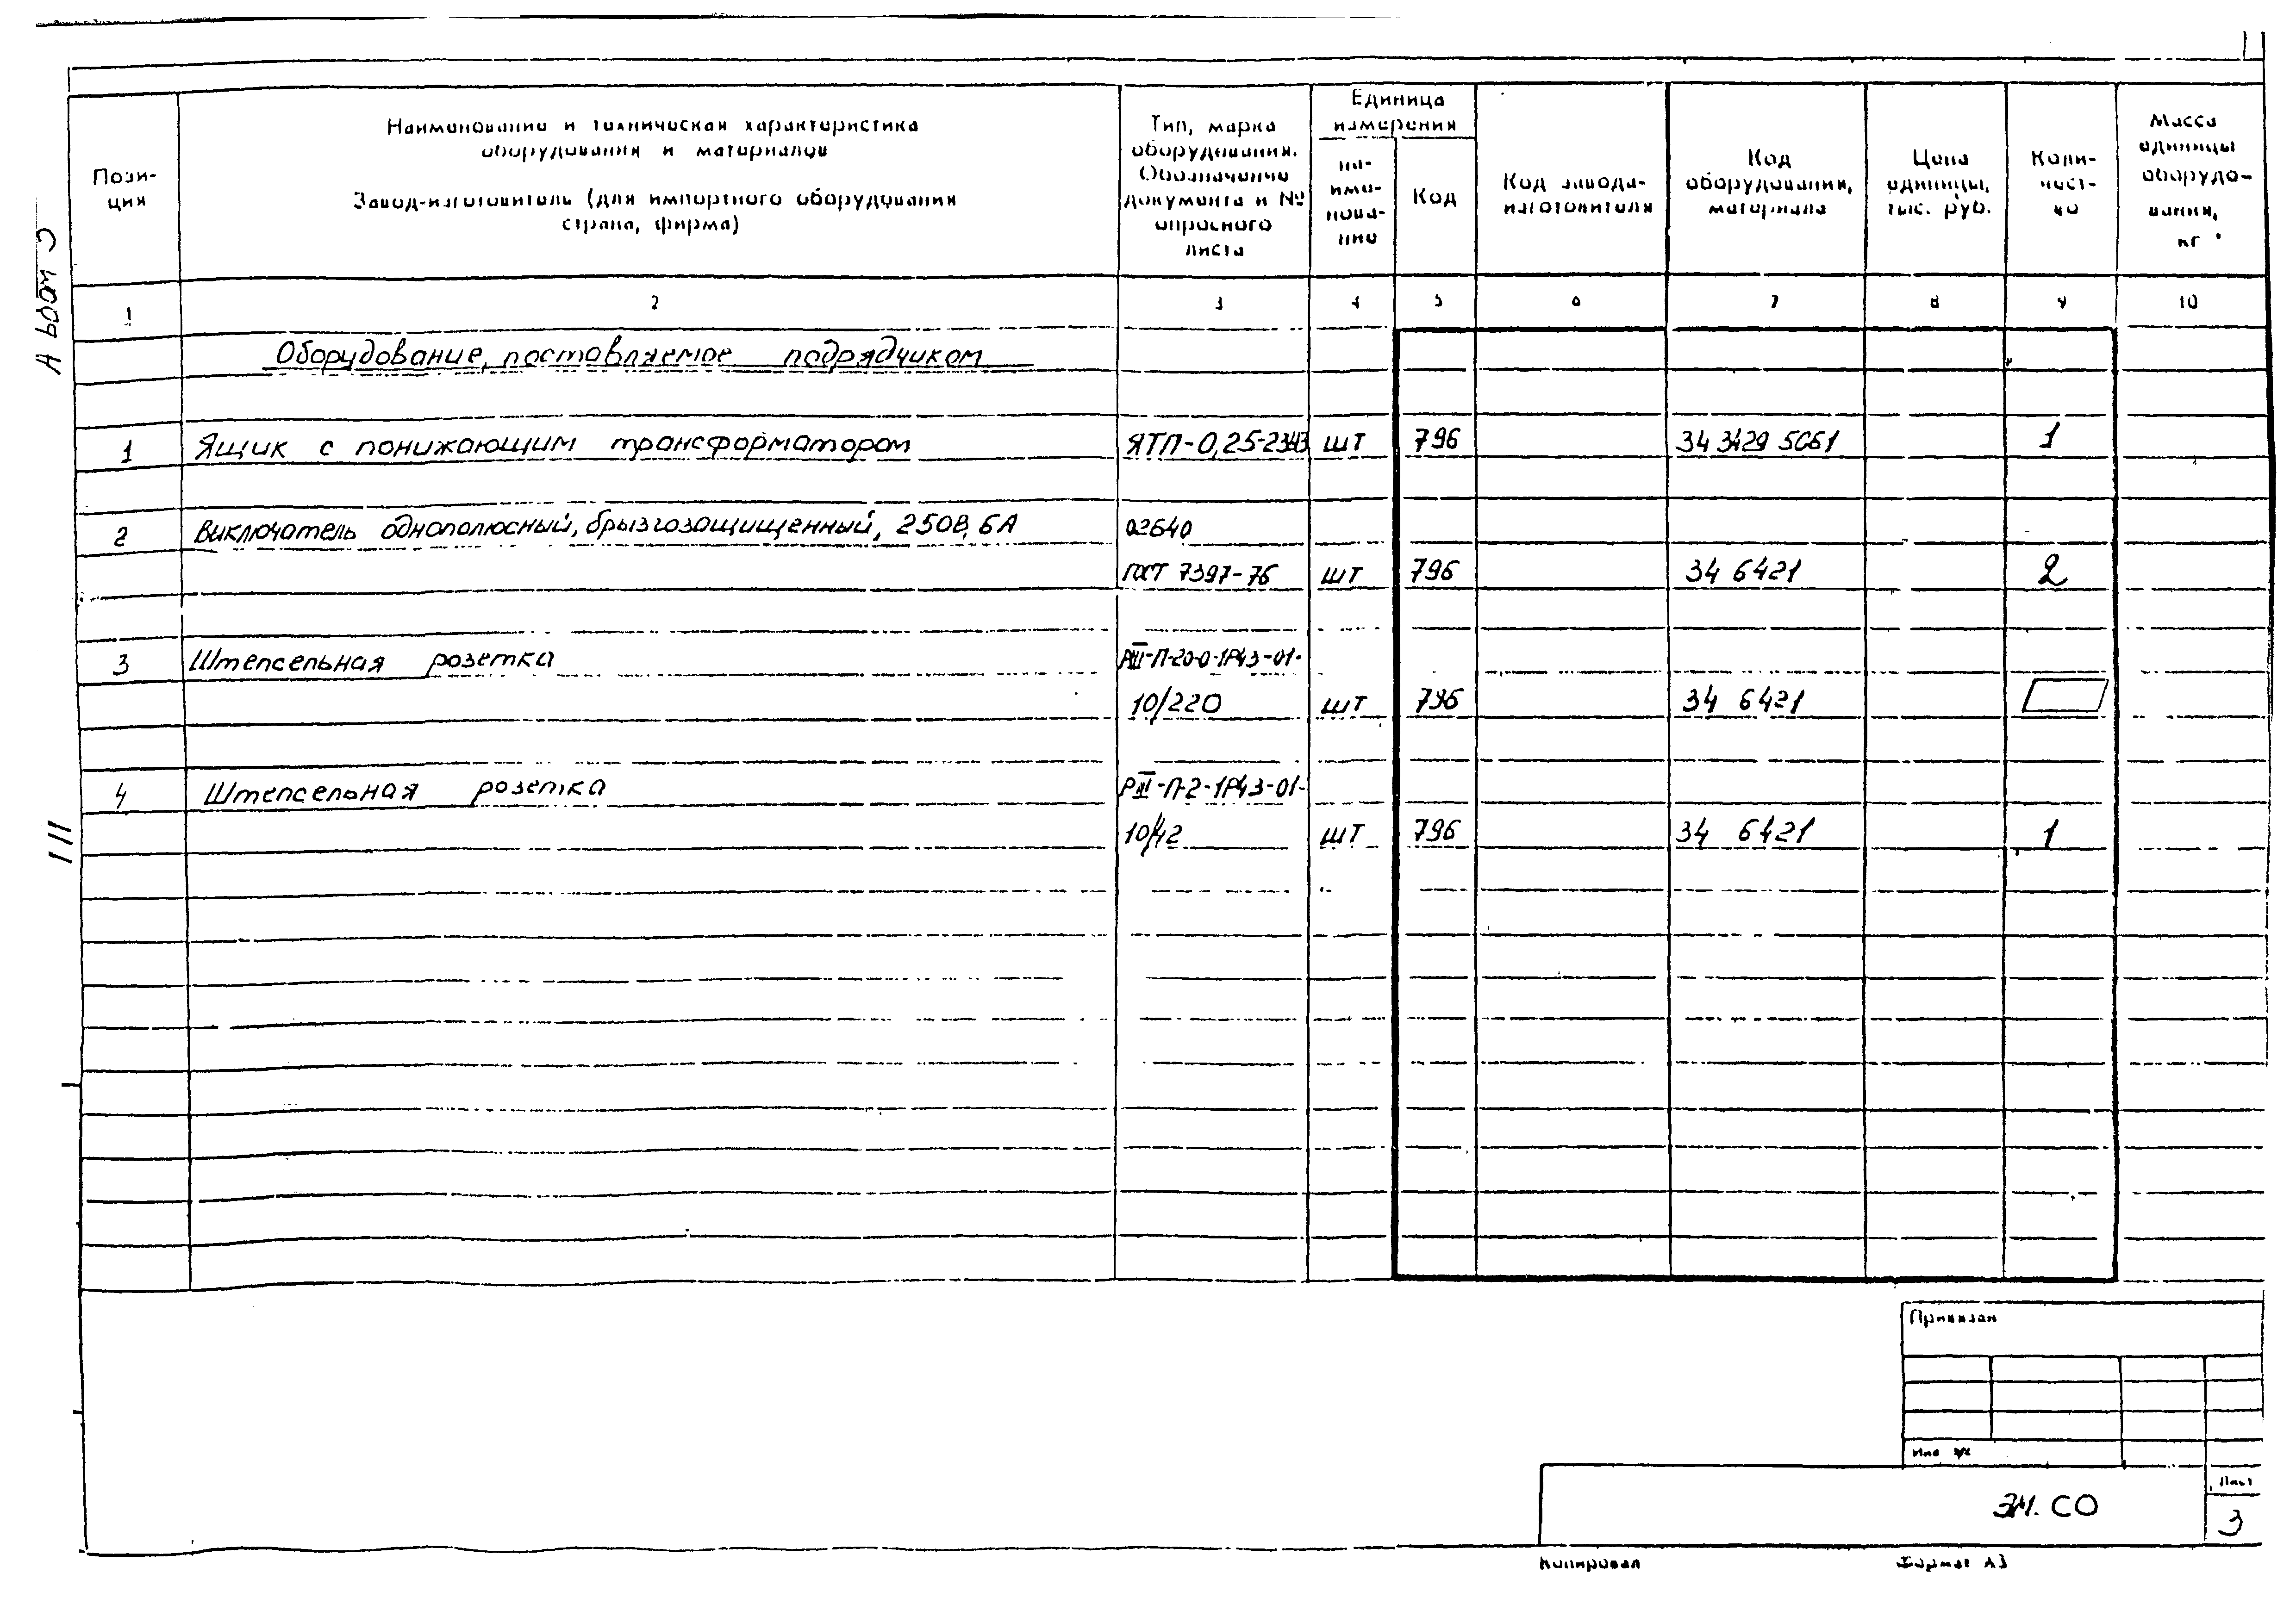 Пози-
ция
Наименование и техническая характеристика
оборудования и материалов
Завод-изготовитель (для импортного оборудования
страна, фирма)
Тип, марка
оборудования.
Обозначение
документа и №
опросного
листа
Единица
измерения
на-
име-
нова-
ние
Код
Код завода-
изготовителя
Код
оборудования,
материала
Цена
единицы,
тыс. руб.
Коли-
чест-
во
Масса
единицы
оборудо-
вания,
кг
1 2 3 4 5 6 7 8 9 10
Оборудование, поставляемое подрядчиком
1 Ящик с понижающим трансформатором ЯТП-0,25-23У3 шт 796 34 3429 5061 1
2 Выключатель однополюсный, брызгозащищенный, 250В, 6А 02640
ГОСТ 7397-76 шт 796 34 6421 2
3 Штепсельная розетка РШ-П-20-0-1Р43-01-
10/220 шт 796 34 6421
4 Штепсельная розетка РШ-П-2-1Р43-01-
10/42 шт 796 34 6421 1
111
Привязан
Инв №
ЭМ. СО
Лист
3
Копировал Формат А3